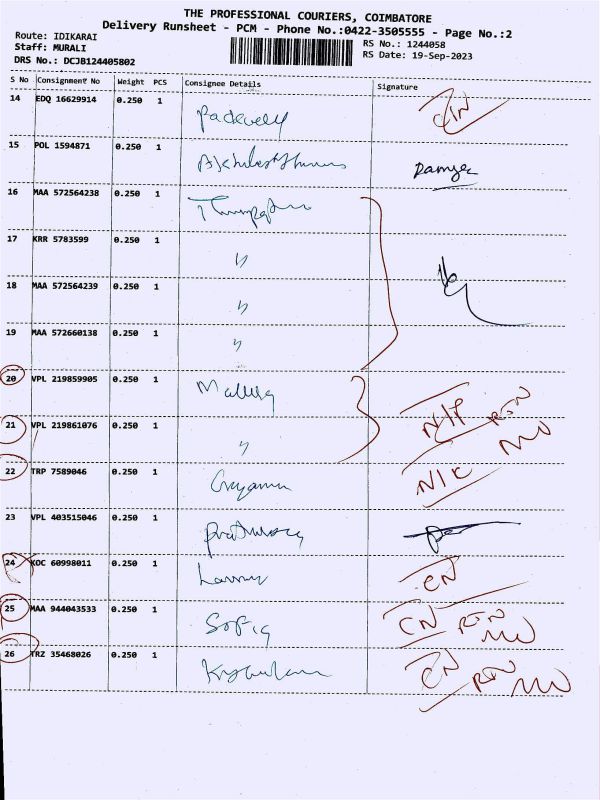 THE PROFESSIONAL COURIERS, COIMBATORE
Delivery Runsheet - PCM - Phone No.:0422-3505555 - Page No.:2
Route: IDIKARAI
RS No.: 1244058
Staff: MURALI
RS Date: 19-Sep-2023
DRS No.: DCJB124405802
S No Consignment No Weight PCS Consignee Details Signature
14 EDQ 16629914 0.250 1
15 POL 1594871 0.250 1 Ramya
16 MAA 572564238 0.250 1
17 KRR 5783599 0.250 1 "
18 MAA 572564239 0.250 1 "
19 MAA 572660138 0.250 1 "
20 VPL 219859905 0.250 1
21 VPL 219861076 0.250 1 " N/P RTN
22 TRP 7589046 0.250 1 N/C
23 VPL 403515046 0.250 1
24 KOC 60998011 0.250 1 CN
25 MAA 944043533 0.250 1 Sofia CN RTN
26 TRZ 35468026 0.250 1 CN RTN